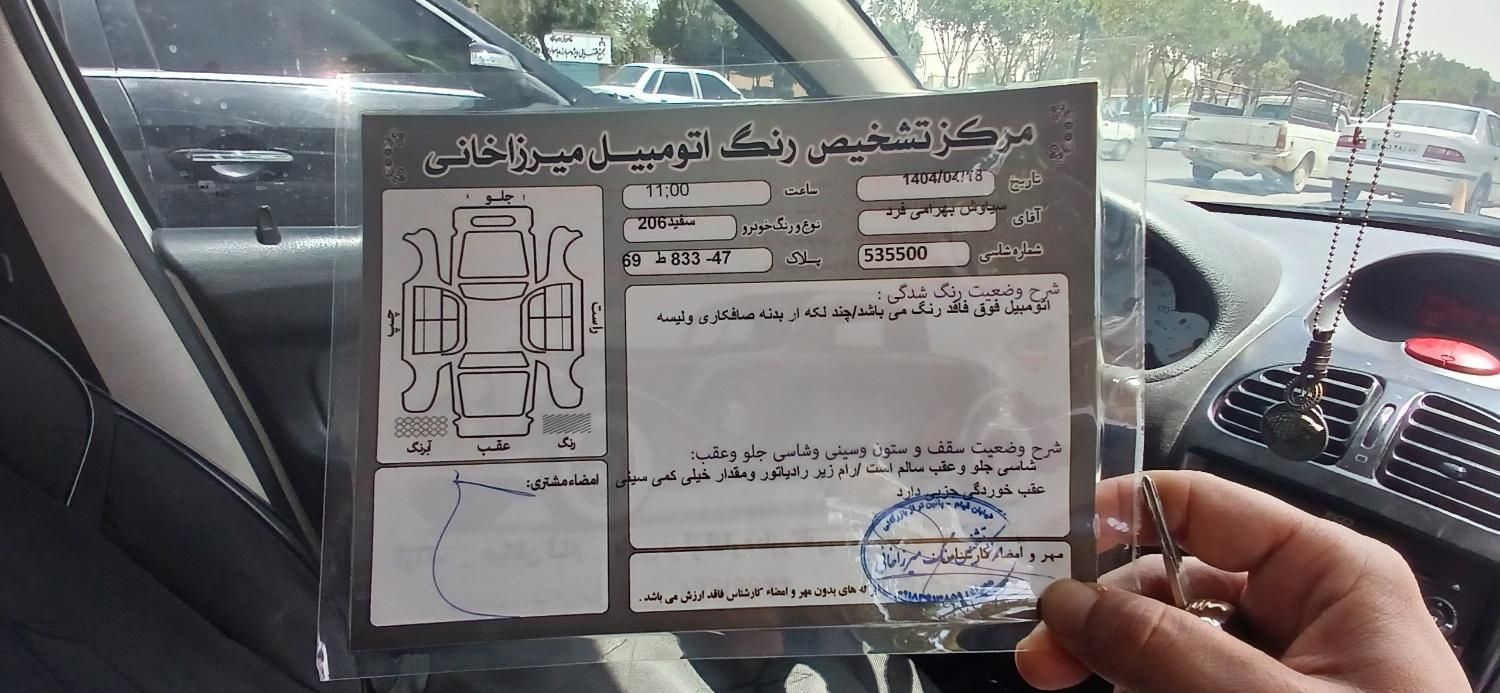 مرکز تشخیص رنگ اتومبیل میرزاخانی
تاریخ 1404/04/18
ساعت 11;00
آقای سیاوش بهرامی فرد
نوع و رنگ خودرو سفید206
شماره شاسی 535500
پلاک 47- 833 ط 69
جلو
چپ
راست
آبرنگ
عقب
رنگ
شرح وضعیت رنگ شدگی :
اتومبیل فوق فاقد رنگ می باشد/چند لکه ار بدنه صافکاری ولیسه
شرح وضعیت سقف و ستون وسینی وشاسی جلو وعقب:
شاسی جلو وعقب سالم است /رام زیر رادیاتور ومقدار خیلی کمی سینی
عقب خوردگی جزیی دارد
امضاء مشتری:
مهر و امضاء کارشناس
های بدون مهر و امضاء کارشناس فاقد ارزش می باشد .
میرزاخانی